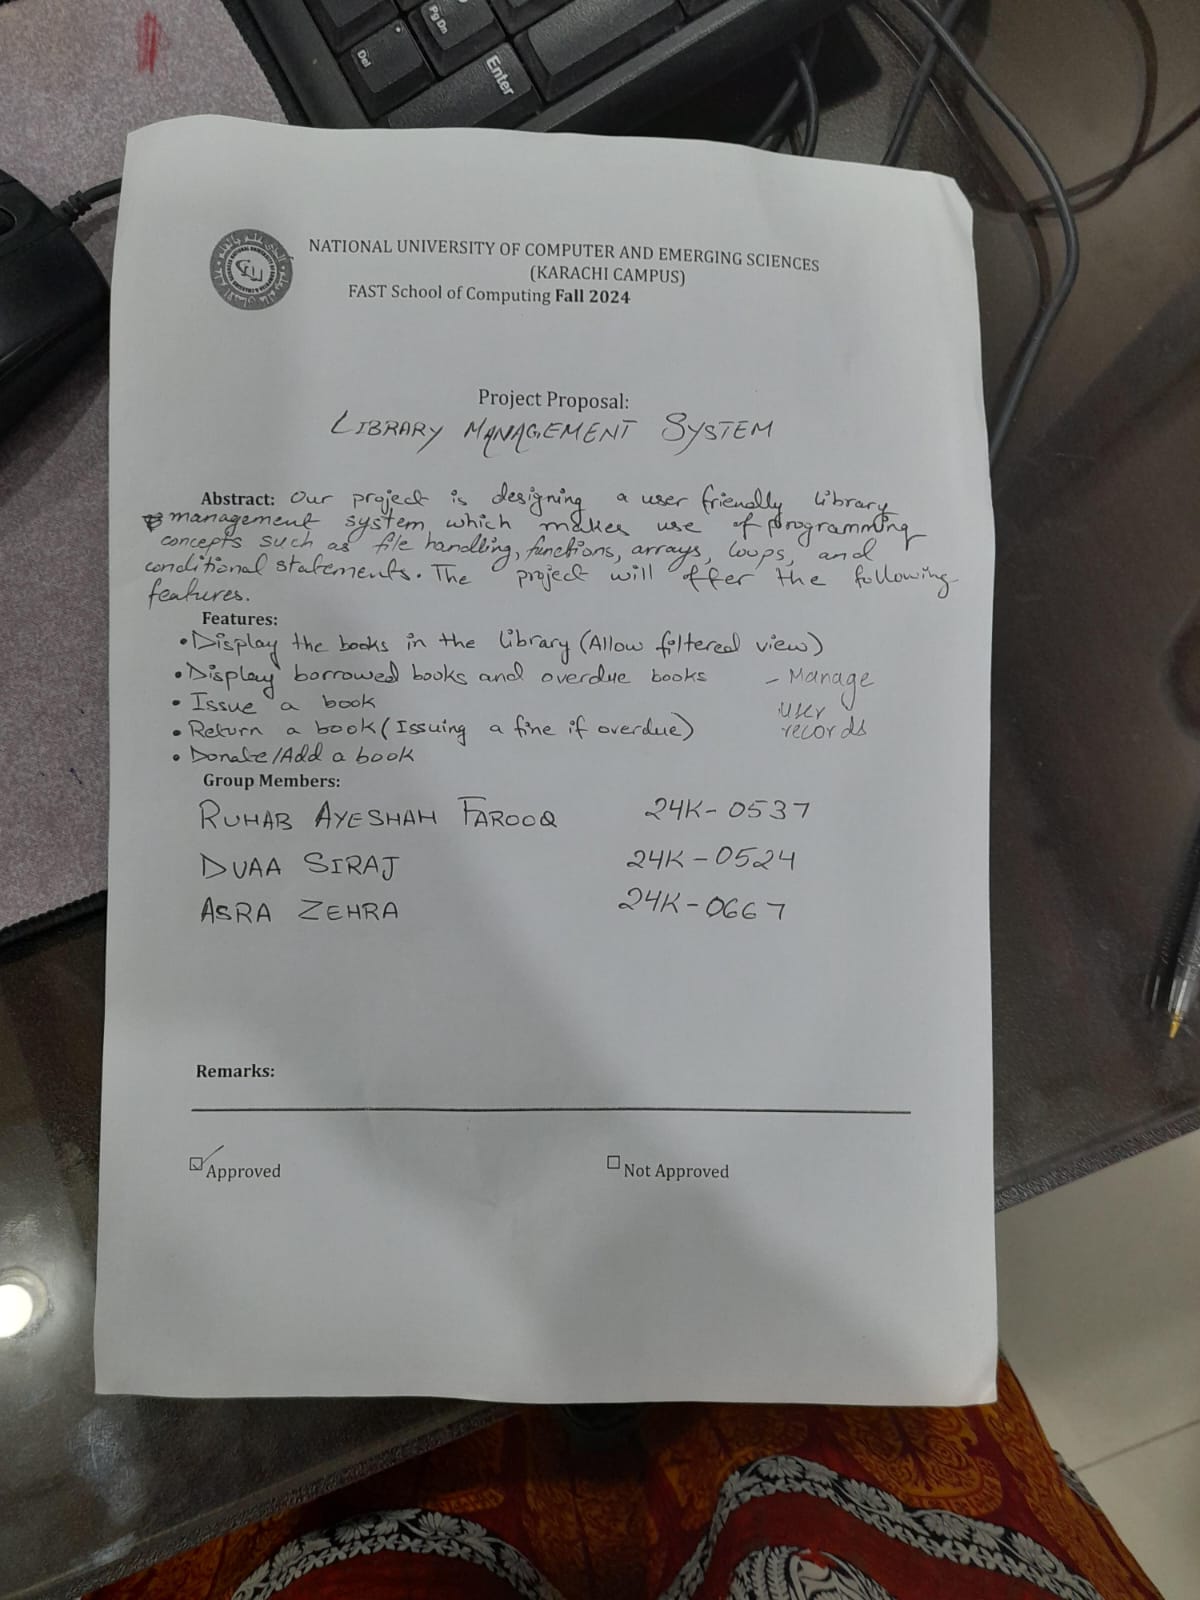 Del
Pg Dn
Enter
NATIONAL UNIVERSITY OF COMPUTER AND EMERGING SCIENCES
(KARACHI CAMPUS)
FAST School of Computing Fall 2024
Project Proposal:
LIBRARY MANAGEMENT SYSTEM
Abstract: Our project is designing a user friendly library
management system which makes use of programming
concepts such as file handling, functions, arrays, loops, and
conditional statements. The project will offer the following
features.
Features:
• Display the books in the library (Allow filtered view)
• Display borrowed books and overdue books
• Issue a book
• Return a book (Issuing a fine if overdue)
• Donate/Add a book
- Manage
user
records
Group Members:
RUHAB AYESHAH FAROOQ 24K-0537
DUAA SIRAJ 24K-0524
ASRA ZEHRA 24K-0667
Remarks:
Approved
Not Approved